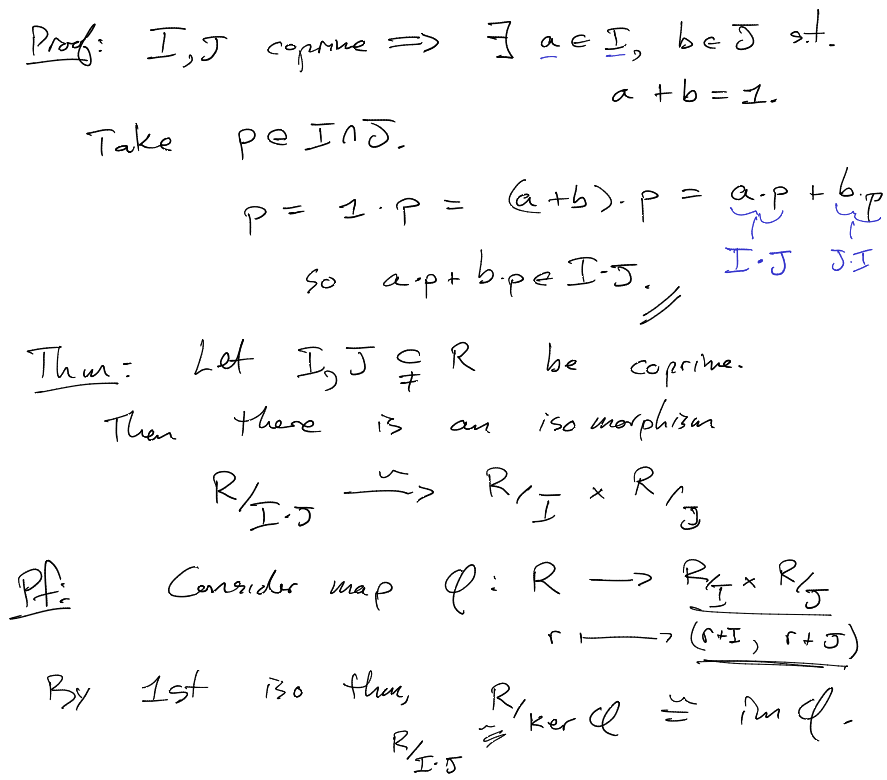 Proof: I, J coprime => ∃ a ∈ I, b ∈ J s.t.
a + b = 1.
Take p ∈ I ∩ J.
p = 1 · p = (a+b) · p = a·p + b·p
I·J J·I
so a·p + b·p ∈ I·J. //
Thm: Let I, J ⊊ R be coprime.
Then there is an isomorphism
R/I·J ⥲ R/I × R/J
Pf: Consider map φ: R → R/I × R/J
r ↦ (r+I, r+J)
By 1st iso thm, R/ker φ ≅ im φ.
R/I·J ≅